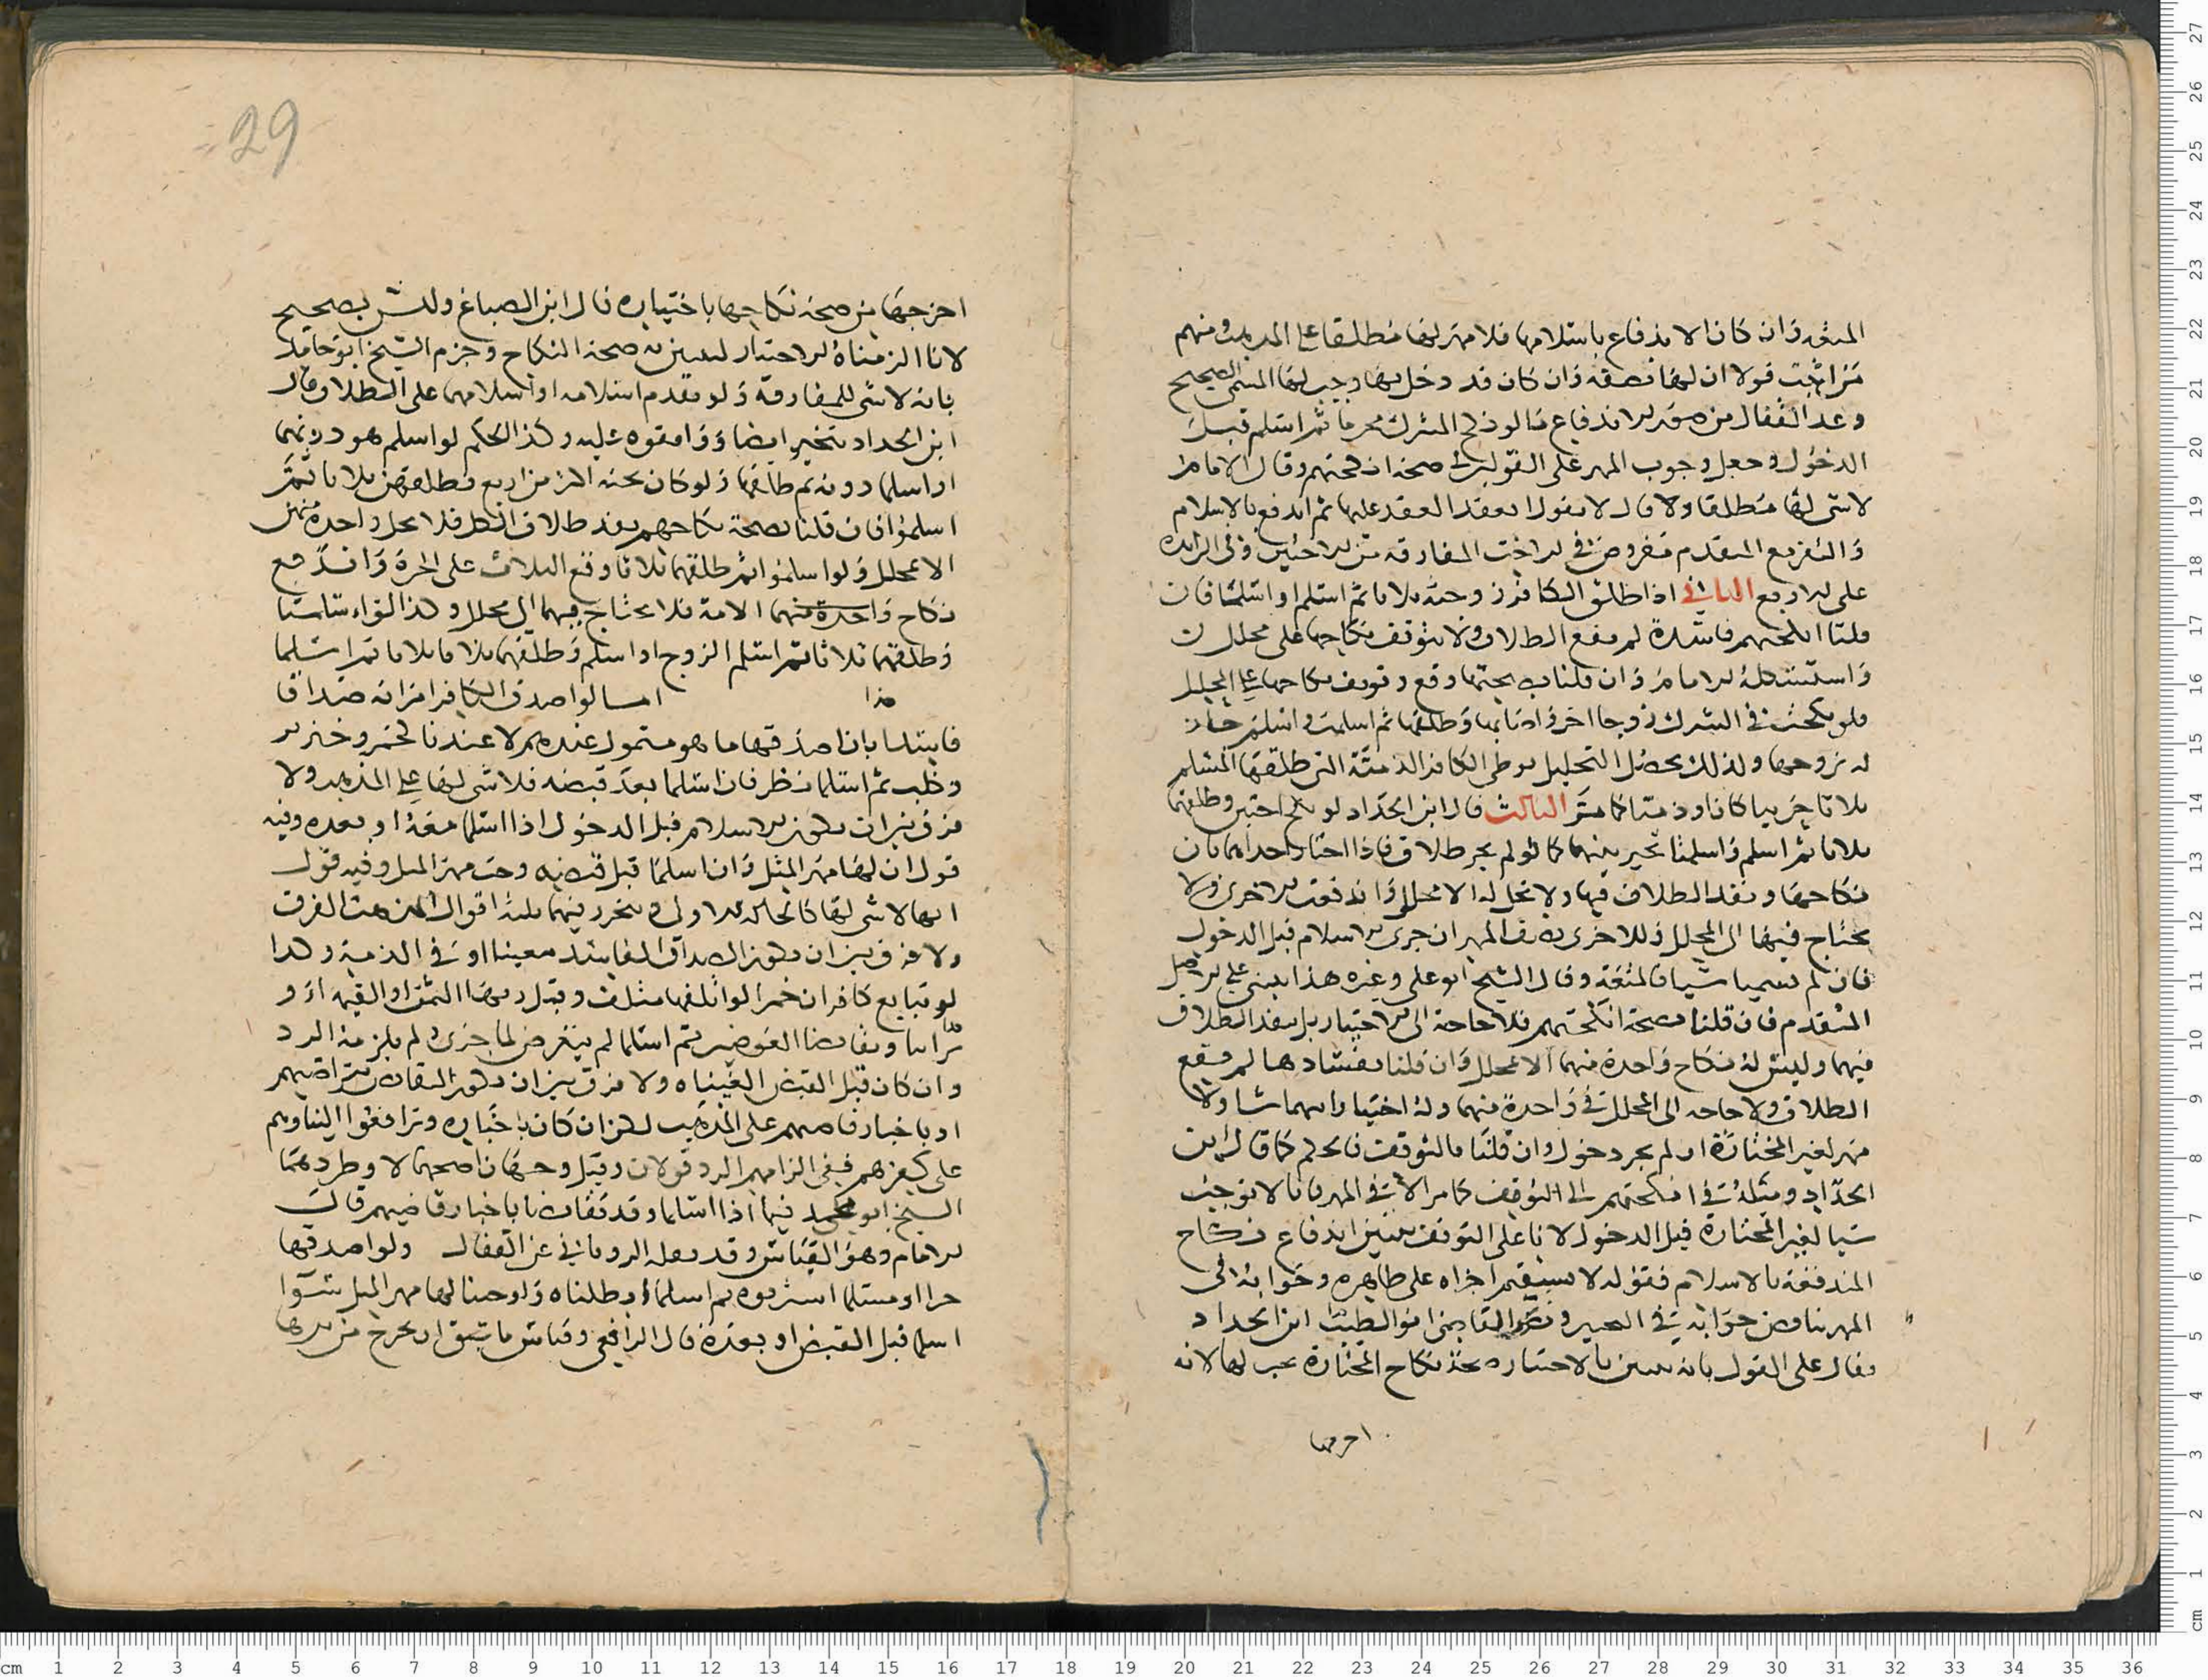 المتعة وان كان الاندفاع باسلامها فلا مهر لها مطلقا على المذهب ومنهم
من اثبت قولا ان لها نصفه وان كان قد دخل بها وجب لها المسمى الصحيح
وعد القفال من صور الاندفاع ما لو نكح المشرك محرما ثم اسلم قبل
الدخول وجعل وجوب المهر على القولين في صحة انكحتهم وقال الامام
لا شي لها مطلقا ولا قال لا نقول انعقد العقد عليها ثم اندفع بالاسلام
والتفريع المتقدم مفروض في الاخت المفارقة من الاختين وفي الزايدة
على الاربع الثاني اذا طلق الكافر زوجته ثلاثا ثم اسلم او اسلمتا فان
قلنا انكحتهم فاسدة لم يقع الطلاق ولا يتوقف نكاحها على محلل
واستشكله الامام وان قلنا بصحتها وقع وتوقف نكاحها على المحلل
فلو نكحت في الشرك زوجا اخر واصابها وطلقها ثم اسلمت واسلم جاز
له تزوجها وكذلك يحصل التحليل بوطي الكافر الذمية التي طلقها المسلم
ثلاثا حربيا كان او ذميا كما مر الثالث قال ابن الحداد لو نكح اختين وطلقهما
ثلاثا ثم اسلم واسلمتا تخير بينهما كما لو لم يجر طلاق فاذا اختار احداهما بان
نكاحها ونفذ الطلاق فيها ولا تحل له الا بمحلل واندفعت الاخرى ولا
يحتاج فيها الى المحلل وللاخرى نصف المهر ان جرى الاسلام قبل الدخول
فان لم يسميا شيا فالمتعة وقال الشيخ ابو علي وغيره هذا يبنى على الاصل
المتقدم فان قلنا بصحة انكحتهم فلا حاجة الى الاختيار بل ينفذ الطلاق
فيهما وليس له نكاح واحدة منهما الا بمحلل وان قلنا بفسادها لم يقع
الطلاق ولا حاجة الى المحلل في واحدة منهما وله اختيار ايهما شا ولا
مهر لغير المختارة ان لم يجر دخول وان قلنا بالتوقف فالحكم كما قال ابن
الحداد ومثله في انكحتهم الى التوقف كما مر الا في المهر فانا لا نوجب
شيا لغير المختارة قبل الدخول لانا على التوقف نتبين اندفاع نكاح
المندفعة بالاسلام فقوله لا يستقيم اجراه على ظاهره وجوابه في
المهر يناقض جوابه في التخيير ونصر القاضي ابو الطيب ابن الحداد
وقال على القول بانه يتبين بالاختيار صحة نكاح المختارة يجب لها لانه
اخرجها
29
اخرجها من صحة نكاحها باختياره قال ابن الصباغ وليس بصحيح
لانا الزمناه الاختيار ليتبين به صحة النكاح وجزم الشيخ ابو حامد
بانه لا شي للمفارقة ولو تقدم اسلامه او اسلامهما على الطلاق قال
ابن الحداد يتخير ايضا ووافقوه عليه وكذا الحكم لو اسلم هو دونهما
او اسلما دونه ثم طلقها ولو كان تحته اكثر من اربع فطلقهن ثلاثا ثم
اسلموا فان قلنا بصحة نكاحهم نفذ طلاق الكل فلا يحل واحدة منهن
الا بمحلل ولو اسلموا ثم طلقهما ثلاثا وقع الثلاث على الحرة واندفع
نكاح واحدة منهما الامة فلا يحتاج فيها الى محلل وكذا لو اسلمتا
وطلقهما ثلاثا ثم اسلم الزوج او اسلم وطلقهما ثلاثا ثم اسلما
هذا امسا لو اصدق الكافر امراته صداقا
فاسدا بان اصدقها ما هو متمول عندهم لا عندنا كخمر وخنزير
وكلب ثم اسلما نظر فان اسلما بعد قبضه فلا شي لها على المذهب ولا
فرق بين ان يكون الاسلام قبل الدخول اذا اسلما معه او بعده وفيه
قول ان لها مهر المثل وان اسلما قبل قبضه وجب مهر المثل وفيه قول
انها لا شي لها كالحالة الاولى ويتخرج منهما ثلثة اقوال الفرق
ولا فرق بين ان يكون الصداق الفاسد معينا او في الذمة وكذا
لو تبايع كافران خمرا لو اتلفها متلف وقبل ربها الثمن او القيمة او
ترابيا وتقابضا العوضين ثم اسلما لم يتعرض لما جرى ولم يلزمه الرد
وان كان قبل القبض الغيناه ولا فرق بين ان يكون التقابض بتراضيهم
او باجبار قاضيهم على المذهب لكن ان كان باجباره وترافعوا الينا وهم
على كفرهم ففي الزامهم الرد قولان وقيل وجهان اصحهما لا وطردهما
الشيخ ابو محمد فيما اذا اسلما وقد تقابضا باجبار قاضيهم قال
الامام وهو القياس وقد نقله الروياني عن القفال ولو اصدقها
حرا او مسلما استرقوه ثم اسلما ابطلناه واوجبنا لها مهر المثل سوا
اسلما قبل القبض او بعده قال الرافعي وقياس ما سبق ان يخرج من يدها